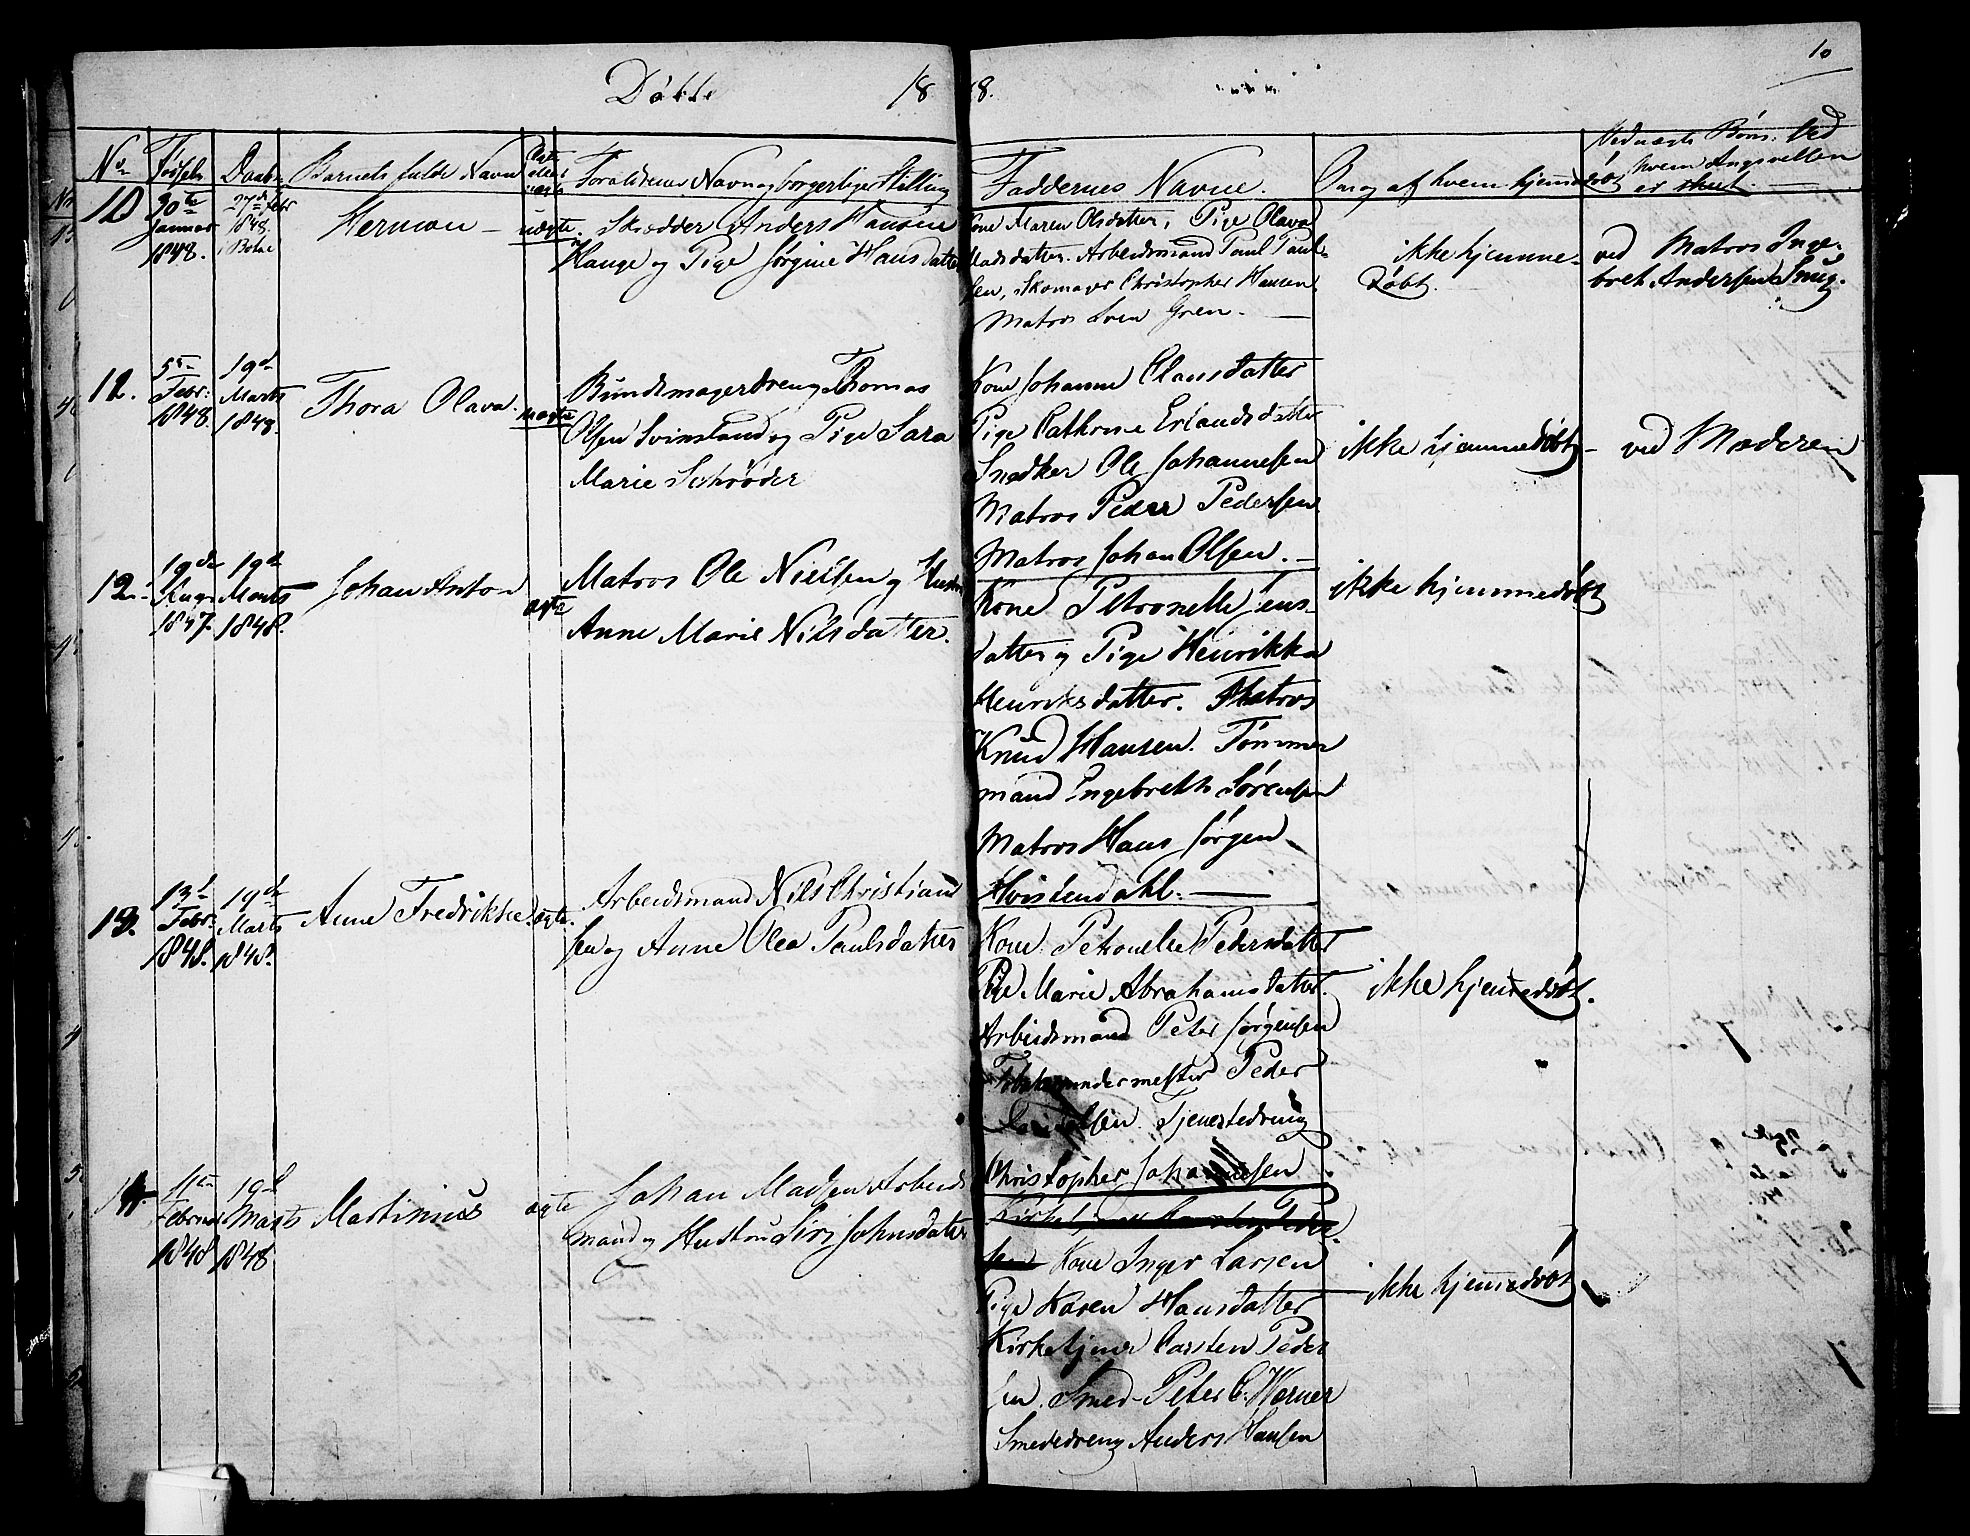 10
Døbte 18 48.
No Fødsels Daabs Barnets fulde Navn Forældrenes Navn og borgerlige Stilling Faddernes Navne. Om og af hvem hjemmedøbt
Ved uægte Børn: ved
hvem Angivelsen
er skeet.
10 30te
Januar
1848.
27de Febr
1848.
Herman
uægte.
Skrædder Anders Hansen
Hauge og Pige Jørgine Hansdatter
Kone Maren Olsdatter, Pige Olava
Madsdatter. Arbeidsmand Paul Paul-
sen, Skomager Christopher Hansen
Matros Sven Gren.
ikke hjemme-
døbt.
ved Matros Inge-
bret Andersen Snug.
11. 5te
Febr:
1848.
19d
Marts
1848.
Thora Olava.
uægte
Bundtmagerdreng Thomas
Olsen Svinsland og Pige Sara
Marie Schrøder
Kone Johanne Clausdatter
Pige Cathrine Erlandsdatter
Snedker Ole Johannesen
Matros Peder Pedersen
Matros Johan Olsen.
ikke hjemmedøbt
ved Moderen
12. 19de
Aug:
1847.
19d
Marts
1848.
Johan Anton
ægte
Matros Ole Nielsen og Hustru
Anne Marie Nilsdatter.
Kone Petronelle Jens-
datter og Pige Henrikka
Henriksdatter. Matros
Knud Hansen. Tømmer
mand Engebreth Sørensen
Matros Hans Jørgen
Hvistendahl.
ikke hjemmedøbt
13. 13d
Febr:
1848.
19de
Marts
1848.
Anne Fredrikke
ægte.
Arbeidsmand Nils Christian
sen og Anne Olea Paulsdatter
Kone Petronelle Pedersdatter
Pige Marie Abrahamsdatter.
Arbeidsmand Peter Jørgensen
Peder
Tjenestedreng
Christopher Johannesen
ikke hjemmedøbt.
14. 11te
Februar
1848
19d
Marts
1848.
Martinius
ægte
Johan Madsen Arbeids
mand og Hustru Siri Johnsdatter
Kirketjener Carsten Peder
sen Kone Inger Larsen
Pige Karen Hansdatter
Kirketjener Carsten Peder
sen. Smed Peter C. Werner
Smededreng Anders Hansen
ikke hjemmedøbt